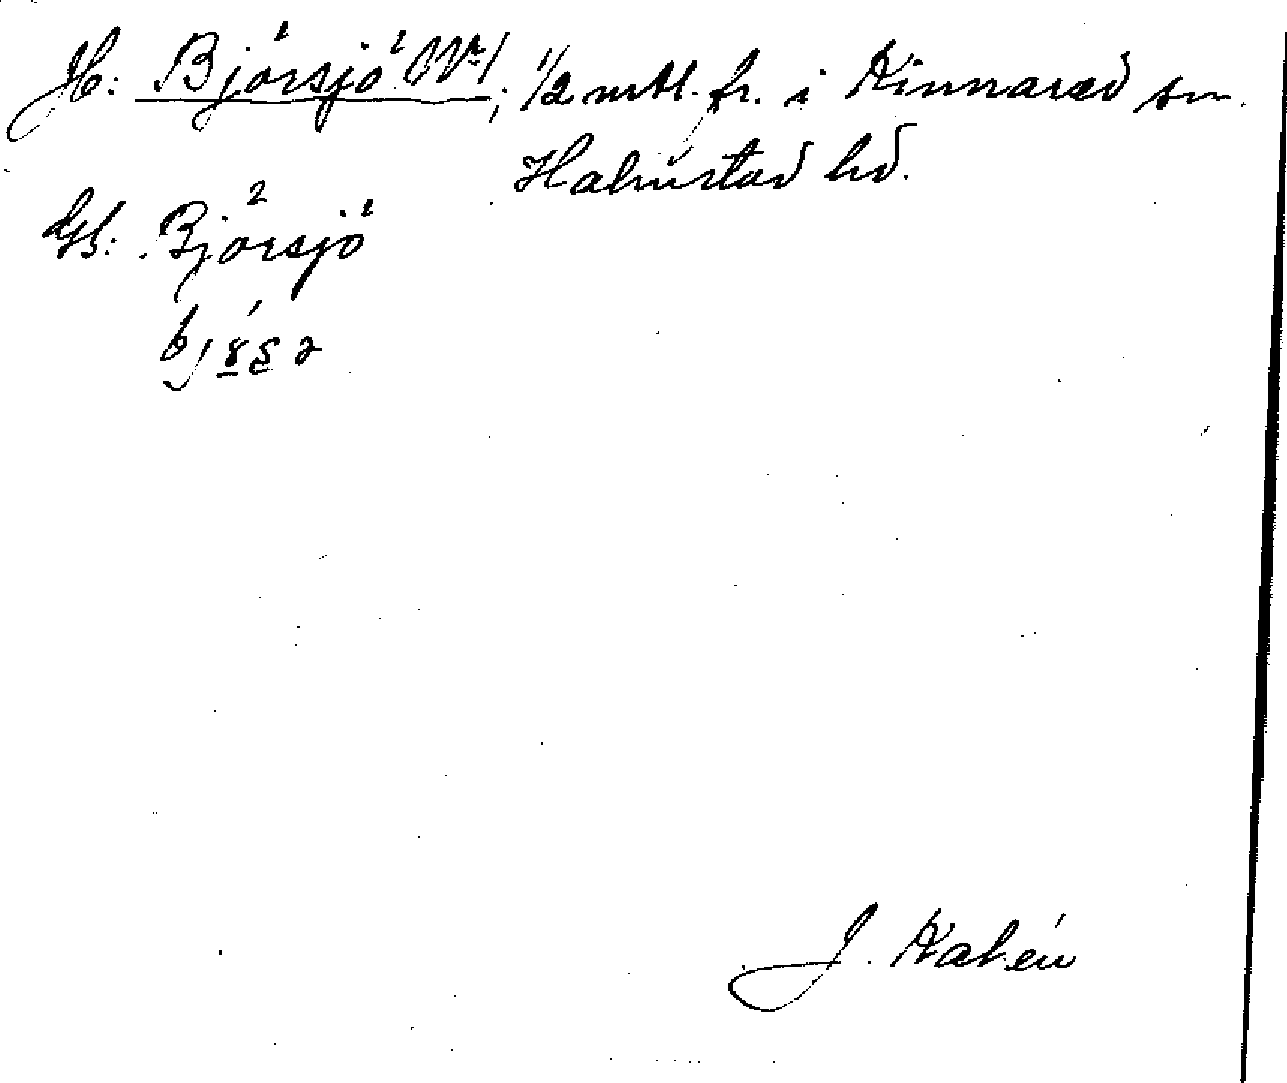 Jb: Björsjö Nr 1; 1/2 mtl. fr. i Kinnared sn.
Halmstad hd.
Gf: Björsjö
J. Kalén